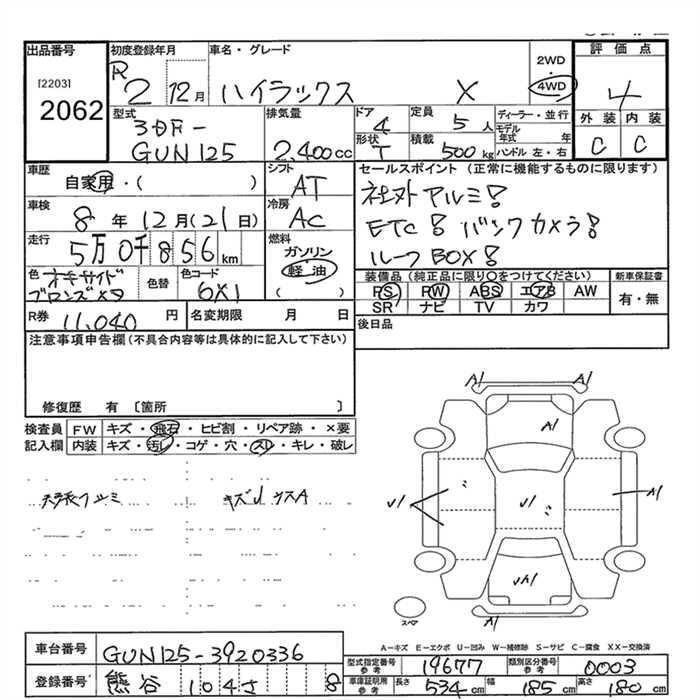 出品番号 初度登録年月 車名・グレード 2WD・4WD 評価点
[2203] 2062 R2 12月 ハイラックス X 4
型式 3DF- GUN125 排気量 2,400cc ドア 4 定員 5人 ディーラー・並行 外装 内装
形状 T 積載 500kg モデル年式 年 ハンドル 左・右 C C
車歴 自家用・( ) シフト AT セールスポイント (正常に機能するものに限ります)
車検 8年12月(21日) 冷房 AC 社外アルミ!
ETC! バックカメラ!
走行 5万0千856km 燃料 ガソリン 軽油 ( ) ルーフBOX!
色 オキサイドブロンズM 色替 色コード 6X1 装備品 (純正品に限り○をつけてください) 新車保証書
PS PW ABS エアB AW 有・無
SR ナビ TV カワ
R券 11,040円 名変期限 月 日 後日品
注意事項申告欄 (不具合内容等は具体的に記入して下さい)
修復歴 有 〔箇所 〕
検査員 FW キズ・飛石・ヒビ割・リペア跡・×要
記入欄 内装 キズ・汚レ・コゲ・穴・スレ・キレ・破レ
キズU ウスA
A1 A1
A1
U1 U1 A1
UA1
A1
スペア
A-キズ E-エクボ U-凹み W-補修跡 S-サビ C-腐食 XX-交換済
車台番号 GUN125-3920336
型式指定番号 参考 19677 類別区分番号 参考 0003
登録番号 熊谷 104さ 8
車庫証明用 参考 長さ 534cm 幅 185cm 高さ 180cm